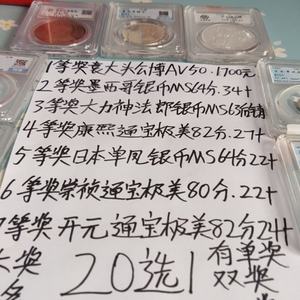 1等奖袁大头公博AV50.1700元
2等奖墨西哥银币MS64分.34+
3等奖大力神法郎银币MS63分
4等奖康熙通宝极美82分.27+
5等奖日本单凤银币MS64分22+
6等奖崇祯通宝极美80分.22+
7等奖开元通宝极美82分24+
奖
20选1
有单奖
双奖